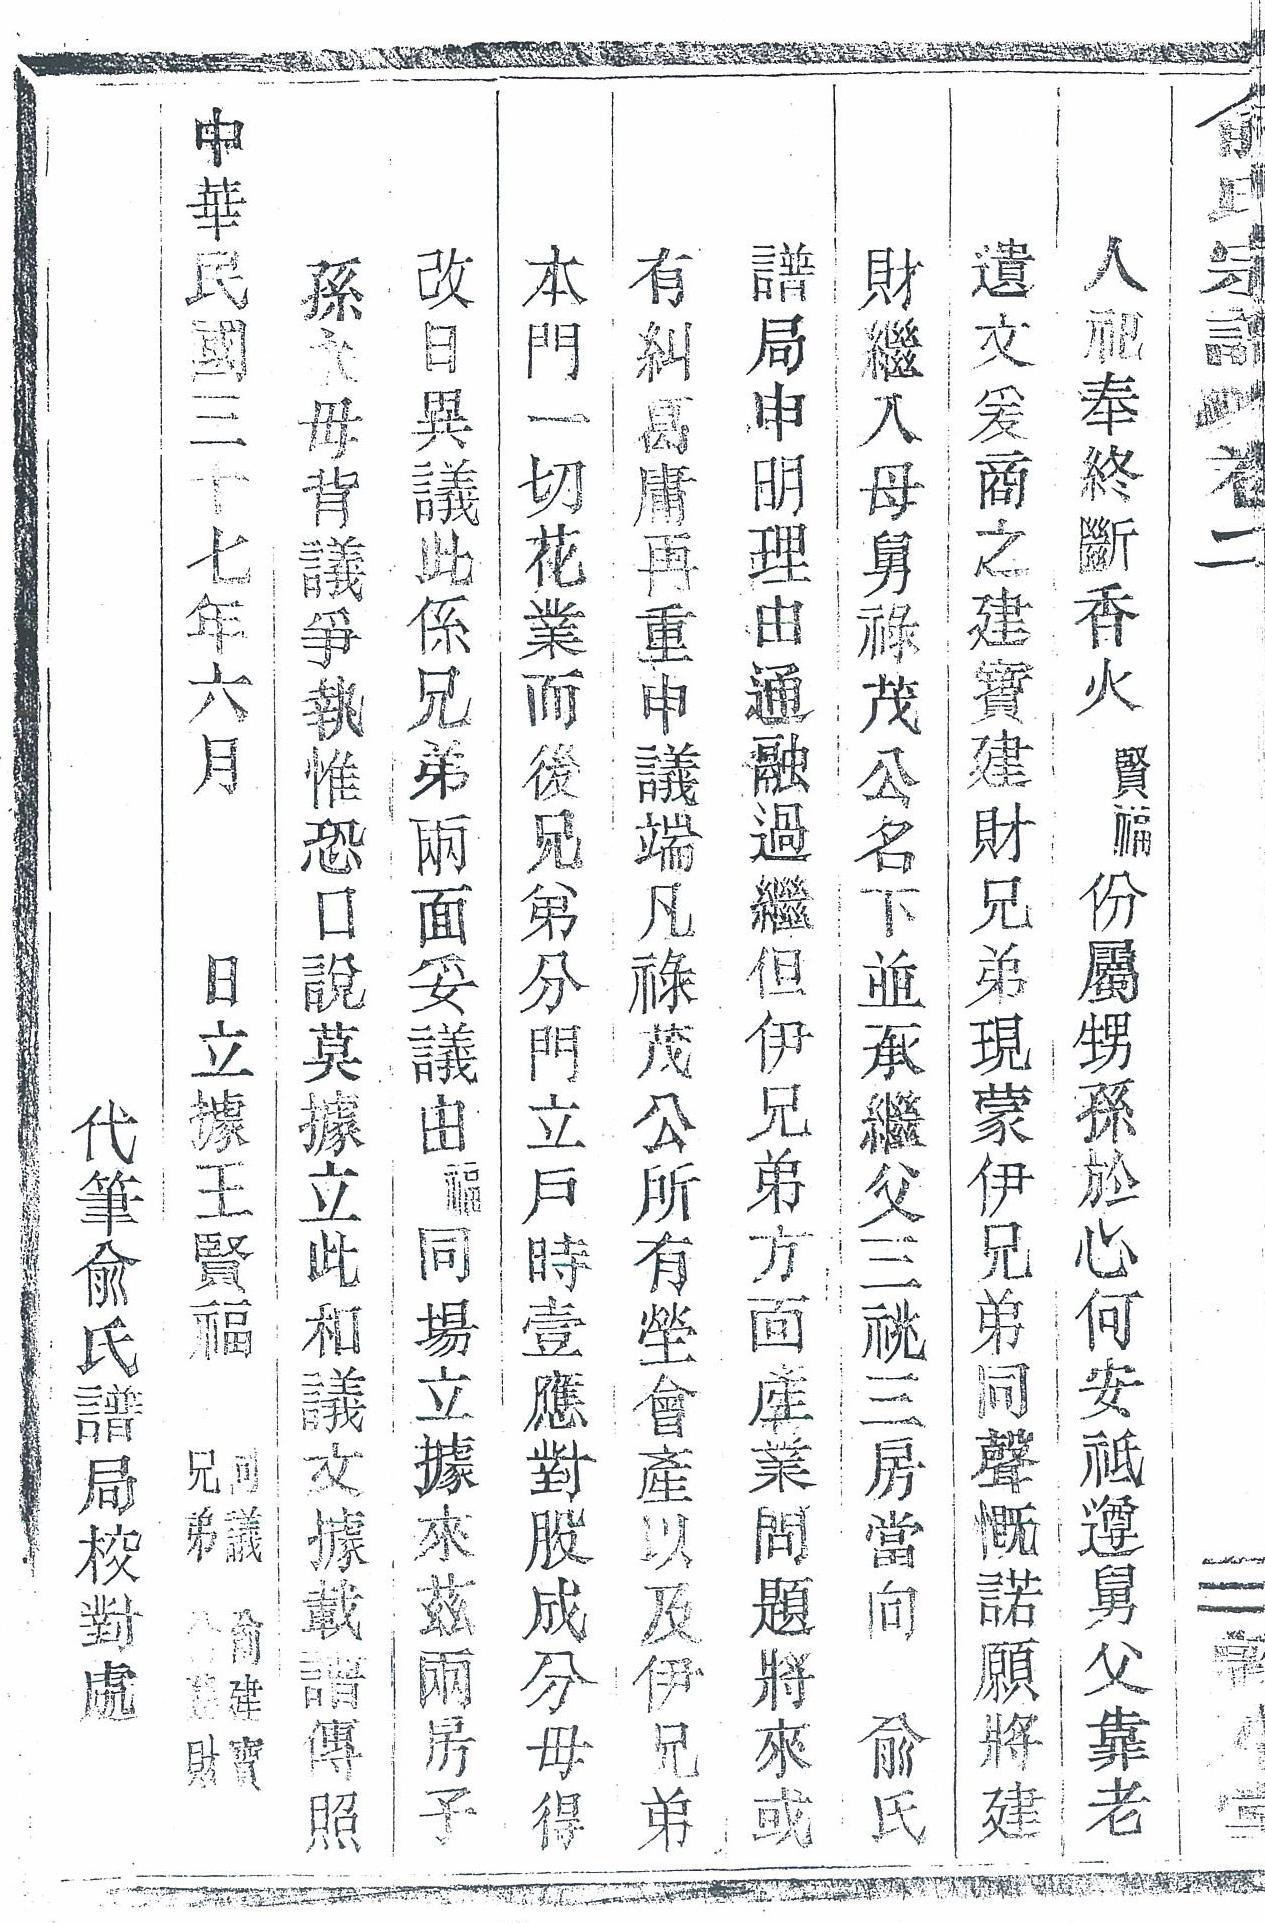 俞氏宗譜 卷二
人祀奉終斷香火賢福份屬甥孫於心何安祗遵舅父靠老
遺文爰商之建寶建財兄弟現蒙伊兄弟同聲慨諾願將建
財繼入母舅祿茂公名下並承繼父三祧三房當向 俞氏
譜局申明理由通融過繼但伊兄弟方面產業問題將來或
有糾葛庸再重申議端凡祿茂公所有塋會產以及伊兄弟
本門一切花業而後兄弟分門立戶時壹應對股成分毋得
改日異議此係兄弟兩面妥議由福同場立據來茲兩房子
孫永毋背議爭執惟恐口說莫據立此和議文據載譜傳照
中華民國三十七年六月 日立據王賢福 同議兄弟 俞建寶 建財
代筆俞氏譜局校對處